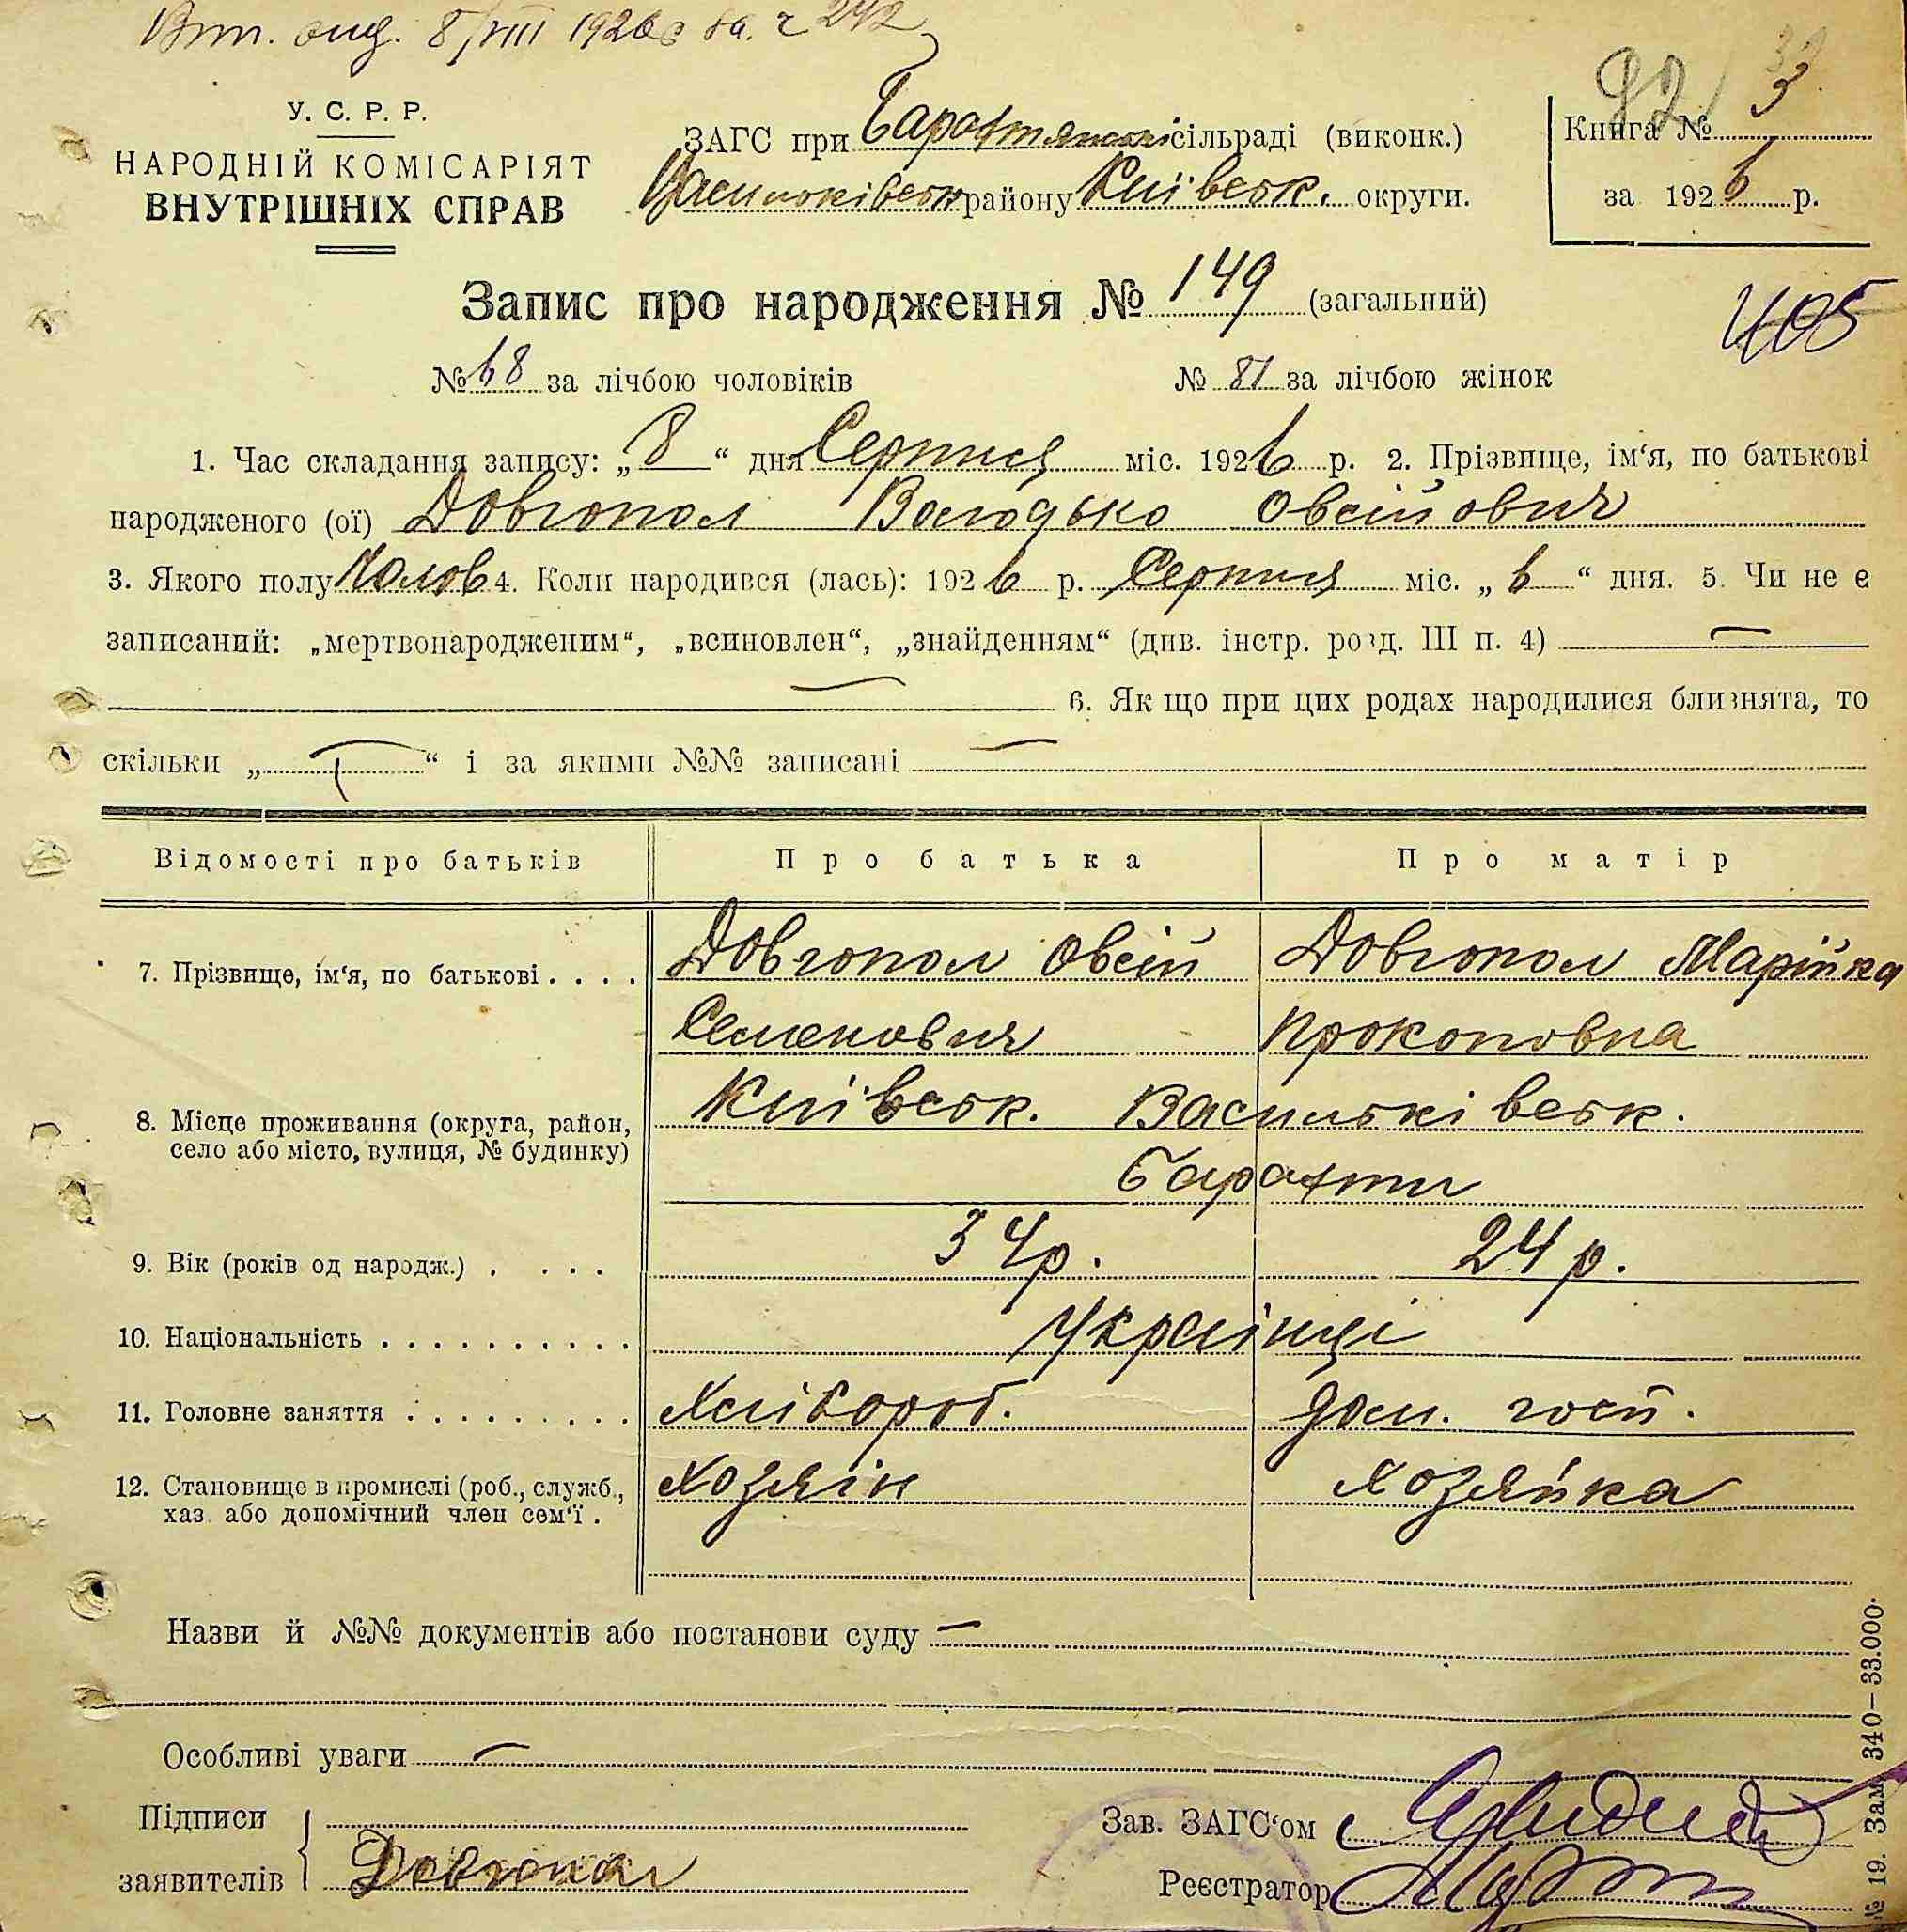 Вит. вид. 8/VIII 1926 р за. ч 242
92 3
У. С. Р. Р.
НАРОДНІЙ КОМІСАРІЯТ
ВНУТРІШНІХ СПРАВ
ЗАГС при Барахтянській сільраді (виконк.)
Васильківськ району Київськ. округи.
Книга № 3
за 1926 р.
Запис про народження № 149 (загальний)
405
№ 68 за лічбою чоловіків № 81 за лічбою жінок
1. Час складання запису: „8“ дня Серпня міс. 1926 р. 2. Прізвище, ім‘я, по батькові
народженого (ої) Довгопол Володько Овсійович
3. Якого полу Чолов 4. Коли народився (лась): 1926 р. Серпня міс. „6“ дня. 5. Чи не є
записаний: „мертвонародженим“, „всиновлен“, „знайденням“ (див. інстр. розд. III п. 4) —
— 6. Як що при цих родах народилися близнята, то
скільки „—“ і за якими №№ записані —
Відомості про батьків Про батька Про матір
7. Прізвище, ім‘я, по батькові . . . . Довгопол Овсій Довгопол Марійка
Семенович Прокоповна
8. Місце проживання (округа, район, село або місто, вулиця, № будинку) Київськ. Васильківськ.
Барахти
9. Вік (років од народж.) . . . . 34 р. 24 р.
10. Національність . . . . . . . . . . Українці
11. Головне заняття . . . . . . . . . Хлібороб. дом. госп.
12. Становище в промислі (роб., служб., хаз. або допомічний член сем‘ї . Хозяін Хозяйка
Назви й №№ документів або постанови суду —
Особливі уваги —
Підписи
заявителів Довгопол
Зав. ЗАГС‘ом
Реєстратор
№ 19. Зам 340—33.000.